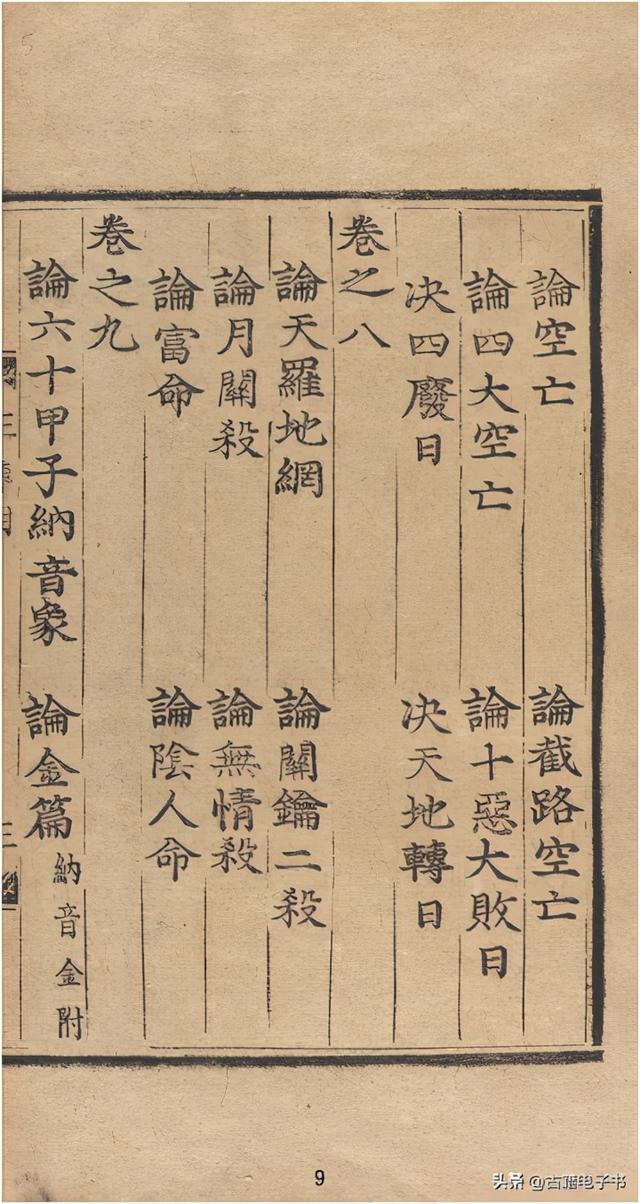 論空亡　論截路空亡
論四大空亡　論十惡大敗日
決四廢日　決天地轉日
卷之八
論天羅地網　論關鑰二殺
論月關殺　論無情殺
論富命　論陰人命
卷之九
論六十甲子納音象　論金篇 納音金附
9
头条 @古籍电子书